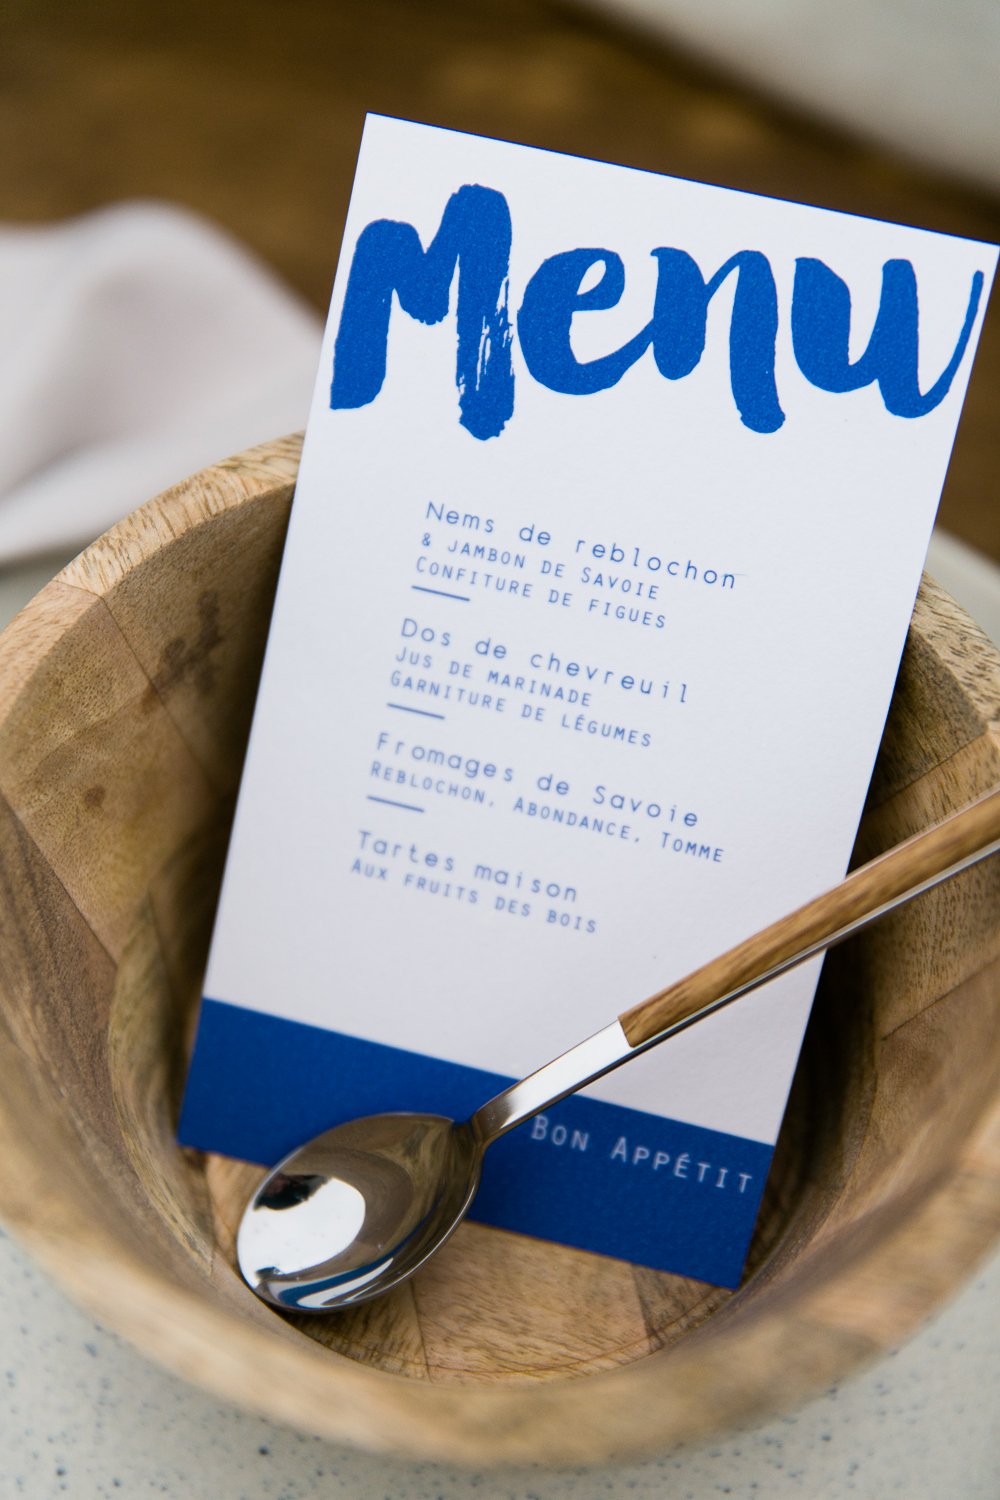 Menu
Nems de reblochon
& JAMBON DE SAVOIE
CONFITURE DE FIGUES
Dos de chevreuil
JUS DE MARINADE
GARNITURE DE LÉGUMES
Fromages de Savoie
REBLOCHON, ABONDANCE, TOMME
Tartes maison
AUX FRUITS DES BOIS
BON APPÉTIT